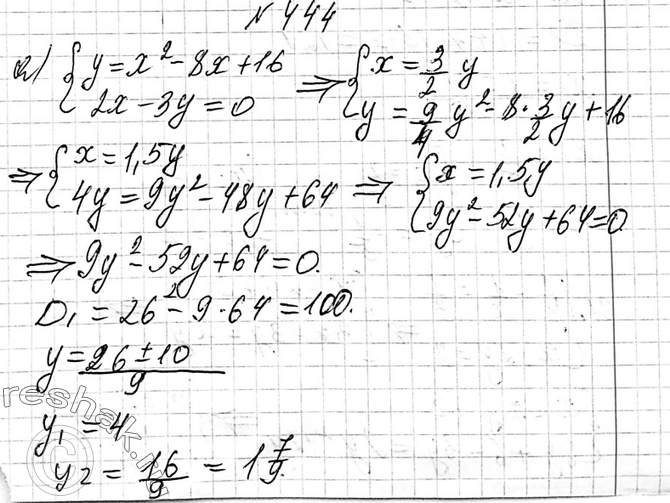 № 444
а) { y = x² - 8x + 16 ⇒ { x = 3/2 y
{ 2x - 3y = 0 { y = 9/4 y² - 8 · 3/2 y + 16
⇒ { x = 1,5y ⇒ { x = 1,5y
{ 4y = 9y² - 48y + 64 { 9y² - 52y + 64 = 0
⇒ 9y² - 52y + 64 = 0.
D₁ = 26² - 9 · 64 = 100.
y = (26 ± 10)/9
y₁ = 4
y₂ = 16/9 = 1 7/9.
reshak.ru